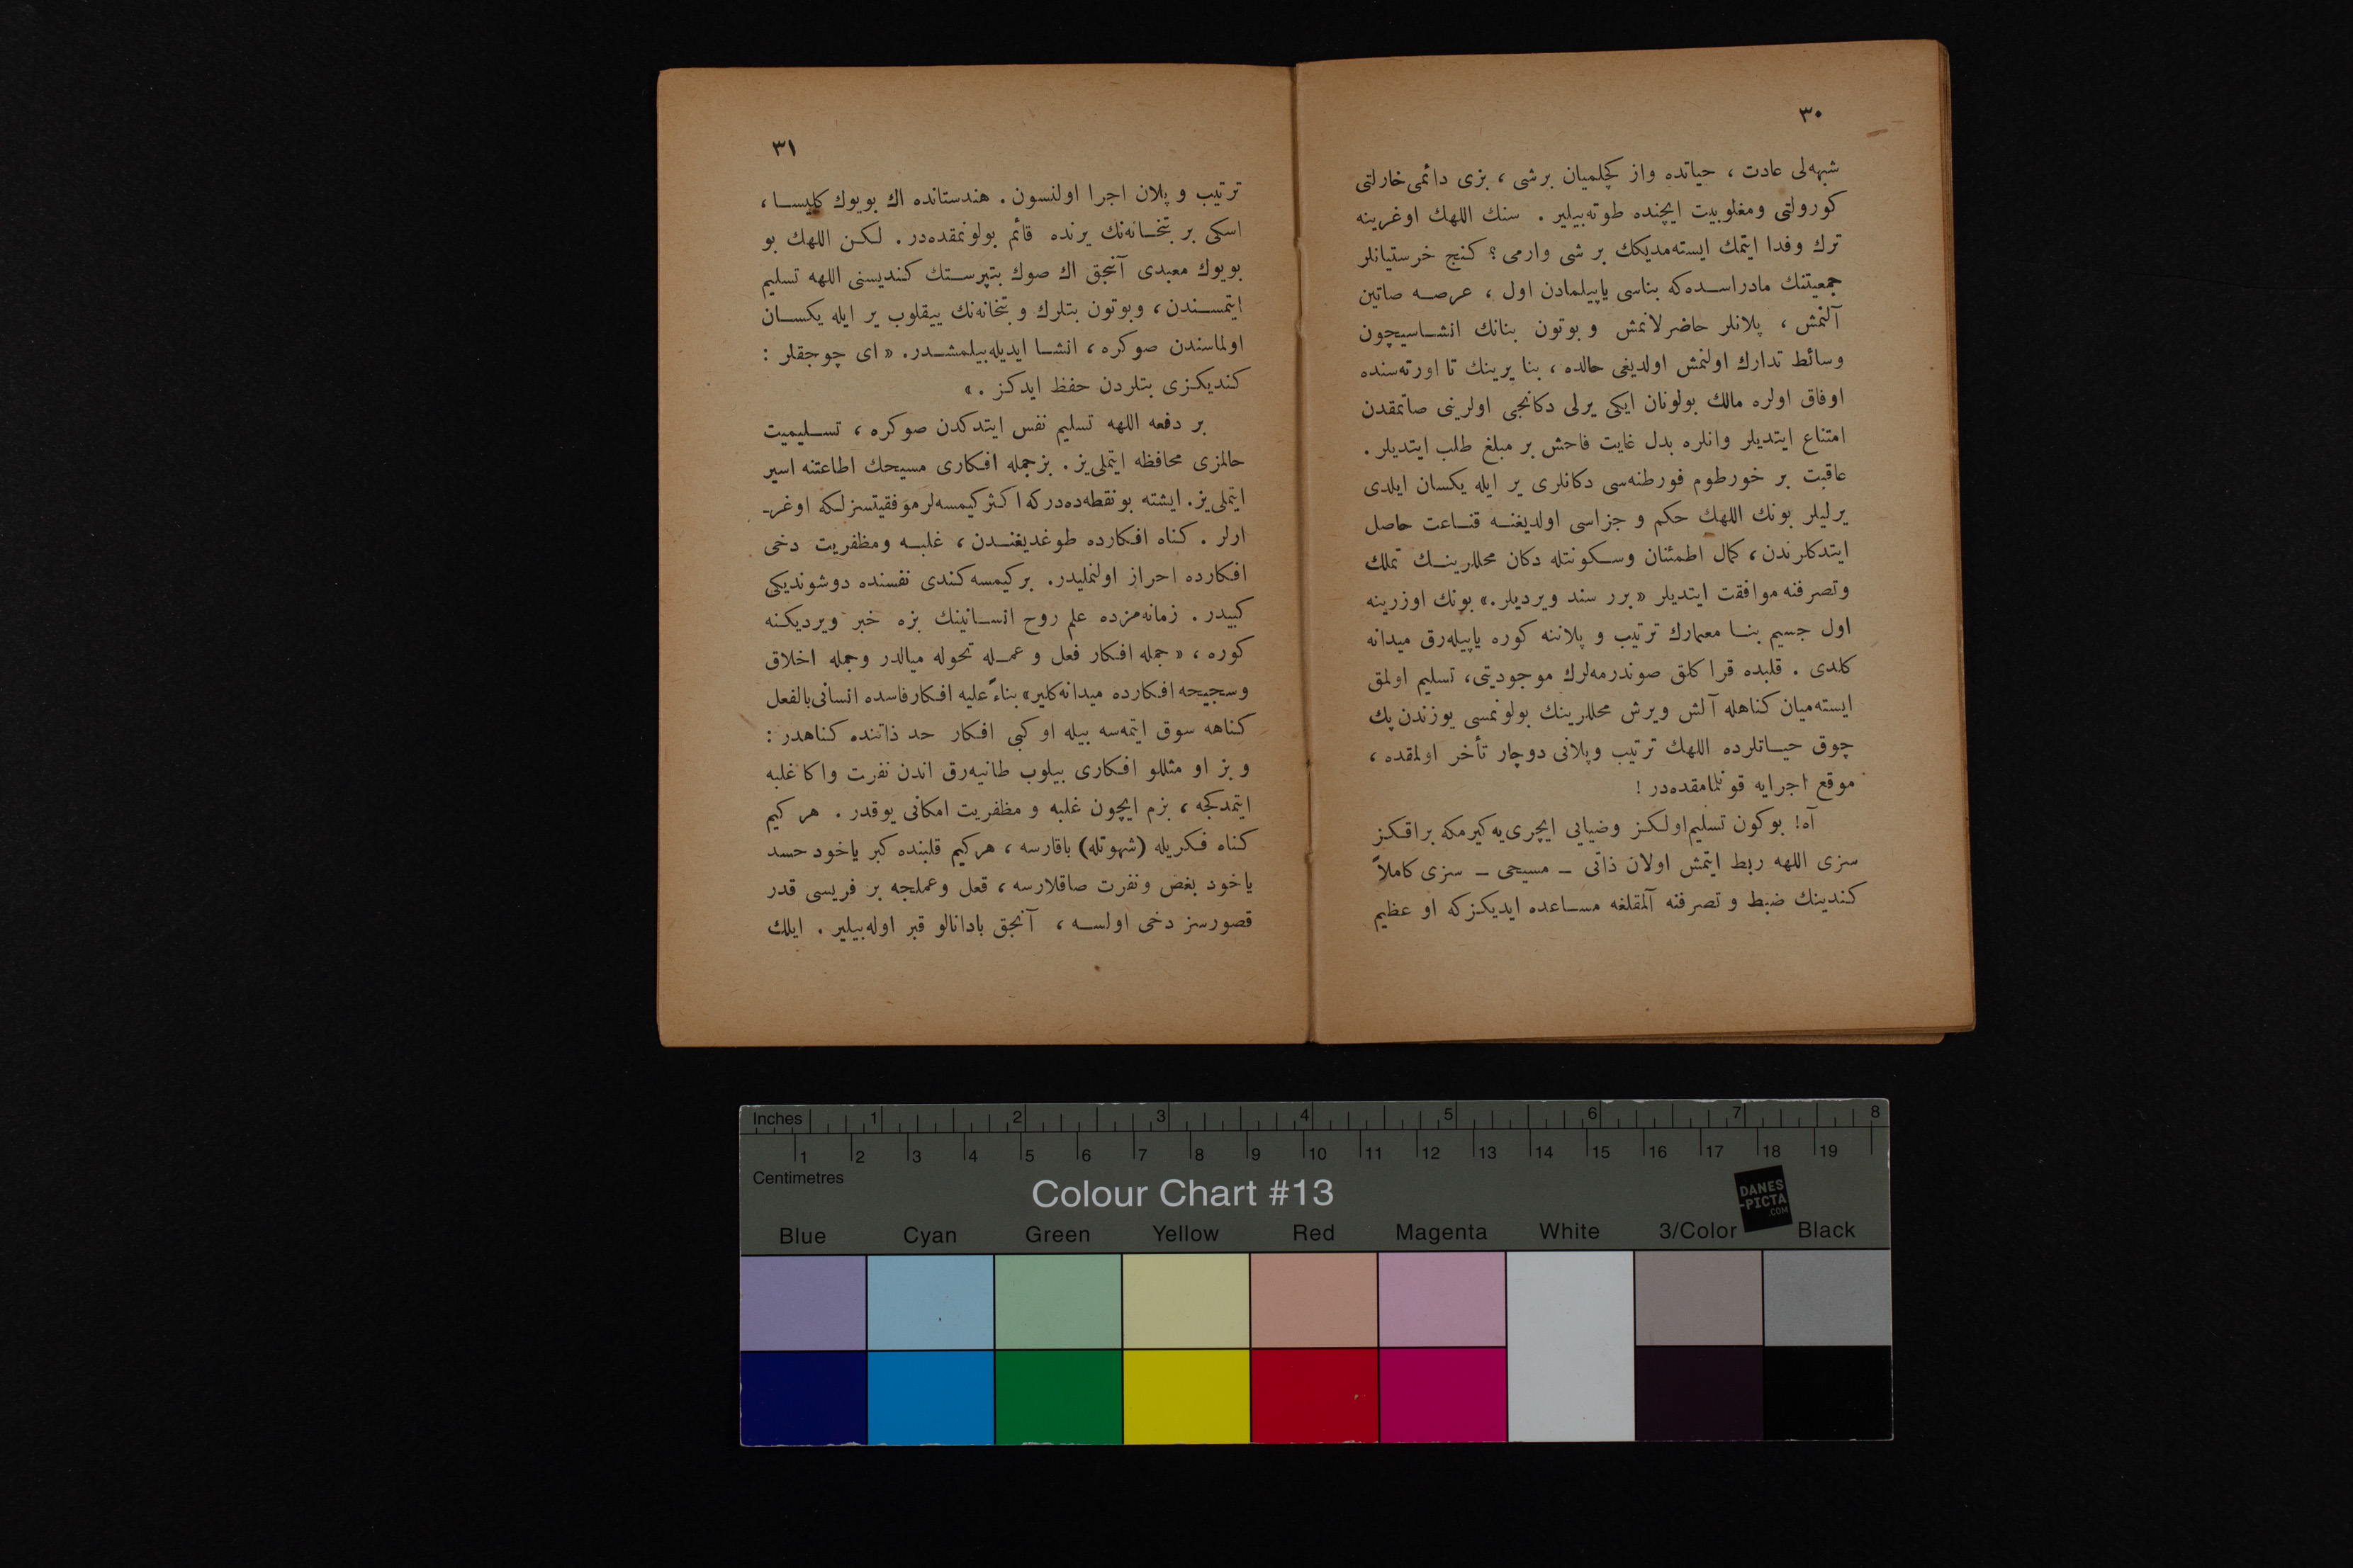 ٣٠
شبهه‌لی عادت ، حیاتده واز كچلمیان برشی ، بزی دائمی خارلتی
كورولتی ومغلوبیت ایچنده طوته‌بیلیر . سنك اللهك اوغرینه
ترك وفدا ایتمك ایسته‌مدیكك بر شی وارمی؟ كنج خرستیانلر
جمعیتنك مادراسده‌كه بناسی یاپیلمادن اول ، عرصه صاتین
آلنمش ، پلانلر حاضرلانمش و بوتون بنانك انشاسیچون
وسائط تدارك اولنمش اولدیغی حالده ، بنا یرینك تا اورته‌سنده
اوفاق اولره مالك بولونان ایكی یرلی دكانجی اولرینی صاتمقدن
امتناع ایتدیلر وانلره بدل غایت فاحش بر مبلغ طلب ایتدیلر .
عاقبت بر خورطوم فورطنه‌سی دكانلری یر ایله یكسان ایلدی
یرلیلر بونك اللهك حكم و جزاسی اولدیغنه قناعت حاصل
ایتدكلرندن، كمال اطمئنان وسكونتله دكان محللرینك تملك
وتصرفنه موافقت ایتدیلر «برر سند ویردیلر.» بونك اوزرینه
اول جسیم بنا معمارك ترتیب و پلاننه كوره یاپیله‌رق میدانه
كلدی . قلبده قراكلق صوندرمه‌لرك موجودیتی، تسلیم اولمق
ایسته‌میان كناهله آلش ویرش محللرینك بولونمسی یوزندن پك
چوق حیاتلرده اللهك ترتیب وپلانی دوچار تأخر اولمقده ،
موقع اجرایه قونلمامقده‌در !
آه! بوكون تسلیم‌اولكز وضیایی ایچری‌یه كیرمكه براقكز
سزی اللهه ربط ایتمش اولان ذاتی – مسیحی – سزی كاملاً
كندینك ضبط و تصرفنه آلمقلغه مساعده ایدیكزكه او عظیم
٣١
ترتیب و پلان اجرا اولنسون . هندستانده اك بویوك كلیسا ،
اسكی بر بتخانه‌نك یرنده قائم بولونمقده‌در . لكن اللهك بو
بویوك معبدی آنجق اك صوك بتپرستك كندیسنی اللهه تسلیم
ایتمسندن ، وبوتون بتلرك و بتخانه‌نك ییقلوب یر ایله یكسان
اولماسندن صوكره ، انشا ایدیله‌بیلمشدر. «ای چوجقلر :
كندیكزی بتلردن حفظ ایدكز .»
بر دفعه اللهه تسلیم نفس ایتدكدن صوكره ، تسلیمیت
حالمزی محافظه ایتملی‌یز . بزجمله افكاری مسیحك اطاعتنه اسیر
ایتملی‌یز. ایشته بونقطه‌ده‌دركه اكثر كیمسه‌لر موفقیتسزلكه اوغر-
ارلر . كناه افكارده طوغدیغندن ، غلبه ومظفریت دخی
افكارده احراز اولنملیدر. بركیمسه كندی نفسنده دوشوندیكی
كبیدر . زمانه‌مزده علم روح انسانینك بزه خبر ویردیكنه
كوره ، «جمله افكار فعل و عمله تحوله میالدر وجمله اخلاق
وسجیحه افكارده میدانه كلیر» بناءً علیه افكار فاسده انسانی بالفعل
كناهه سوق ایتمه‌سه بیله او كبی افكار حد ذاتنده كناهدر :
و بز او مثللو افكاری بیلوب طانیه‌رق اندن نفرت واكا غلبه
ایتمدكجه ، بزم ایچون غلبه و مظفریت امكانی یوقدر . هر كیم
كناه فكریله (شهوتله) باقارسه ، هركیم قلبنده كبر یاخود حسد
یاخود بغض ونفرت صاقلارسه ، قعل وعملجه بر فریسی قدر
قصورسز دخی اولسه ، آنجق بادانالو قبر اوله‌بیلیر . ایلك
Inches 1 2 3 4 5 6 7 8
1 2 3 4 5 6 7 8 9 10 11 12 13 14 15 16 17 18 19
Centimetres
Colour Chart #13
DANES
-PICTA
.COM
Blue Cyan Green Yellow Red Magenta White 3/Color Black